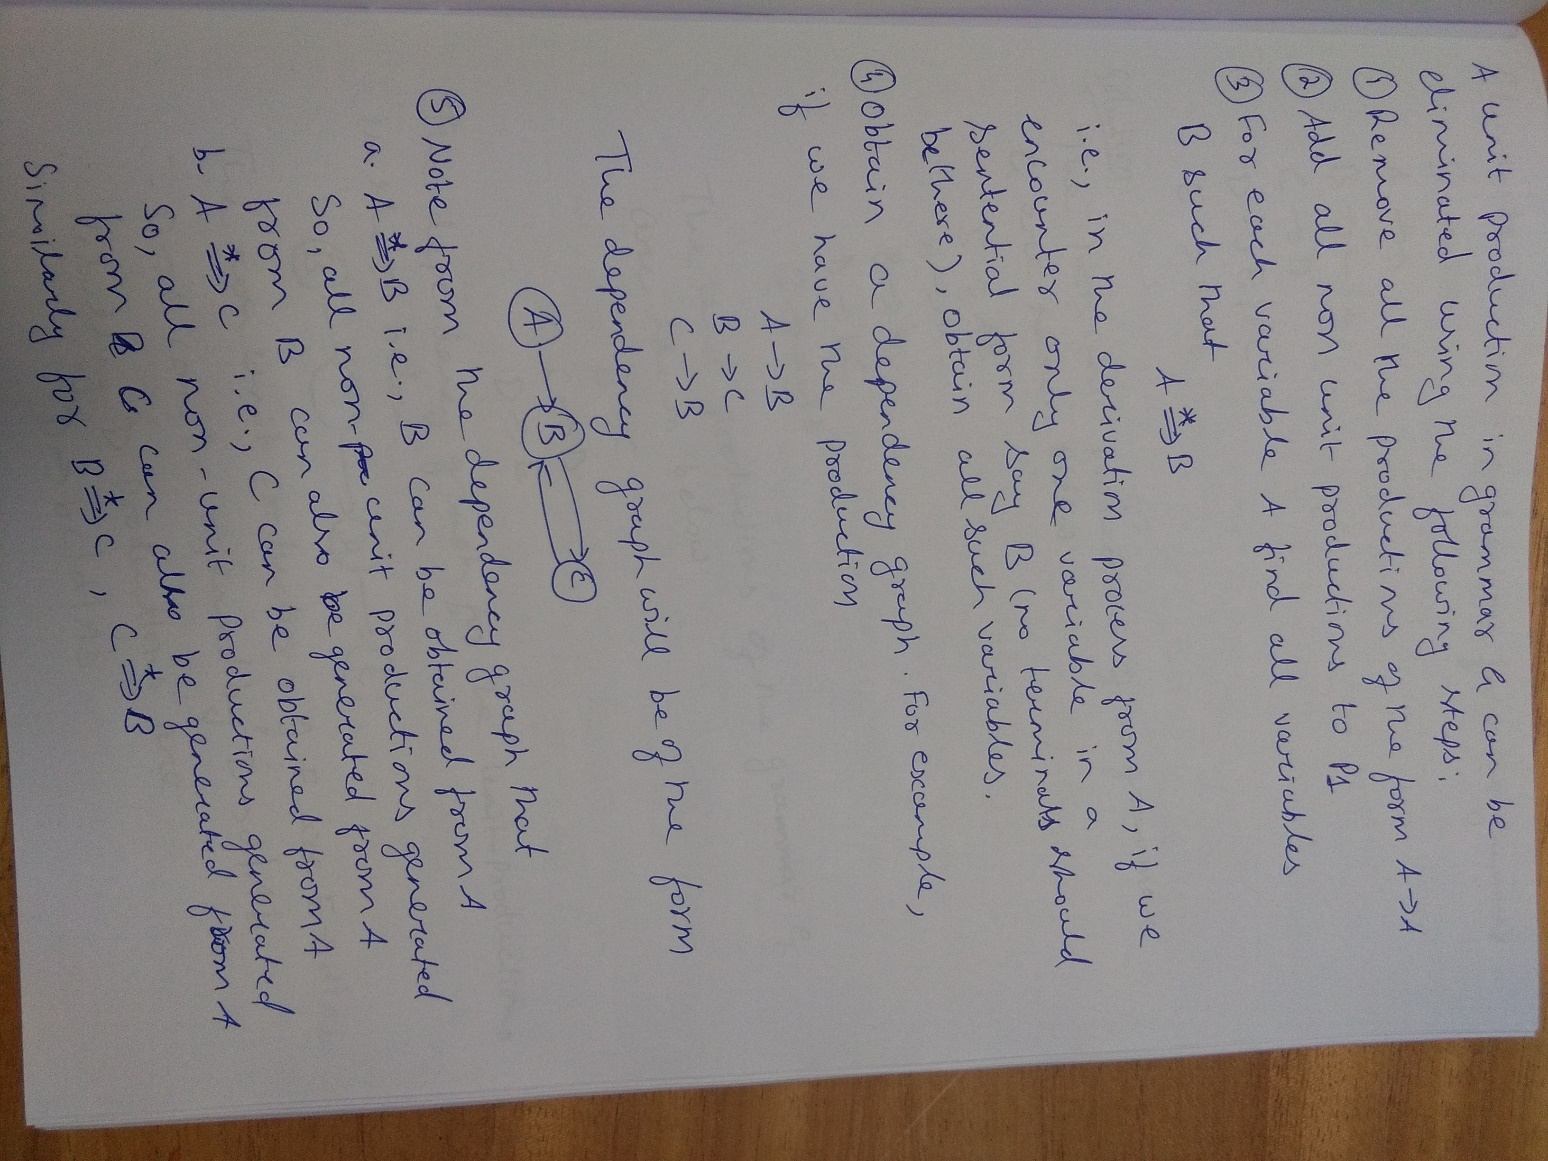 A unit production in grammar G can be
eliminated using the following steps:
① Remove all the productions of the form A→A
② Add all non unit productions to P1
③ For each variable A find all variables
B such that
A *⇒ B
i.e., in the derivation process from A, if we
encounter only one variable in a
sentential form say B (no terminals should
be there), obtain all such variables.
④ Obtain a dependency graph. For example,
if we have the production
A→B
B→C
C→B
The dependency graph will be of the form
A B C
⑤ Note from the dependency graph that
a. A *⇒ B i.e., B can be obtained from A
So, all non-unit productions generated
from B can also be generated from A
b. A *⇒ C i.e., C can be obtained from A
So, all non-unit productions generated
from C can also be generated from A
Similarly for B *⇒ C, C *⇒ B